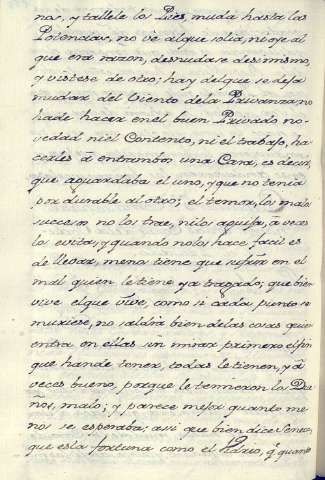 nos, y tallele los Pies, muda hasta las
Potencias, no vè al que solia, ni oye al
que era razon, desnudase de si mismo,
y vistese de otro; hay del que se deja
mudar del Viento dela Privanza no
hade hacer en el buen Privado no-
vedad ni el Contento, ni el trabajo, ha-
cerles à entrambos una Cara, es decir,
que aguardaba el uno, y que no tenia
por durable al otro; el temor, los malos
sucesos no los trae, ni los aquexa, à veces
los evita, y quando no los hace faciles
de llevar, menos tiene que sufrir en el
mal quien le tiene ya tragado; que bien
vive el que vive, como si cada punto se
muriese, no saldra bien delas cosas quien
entra en ellas sin mirar primero el fin
que hande tener, todas le tienen, y à
veces bueno, porque le temieron los Da-
ños, malo; y parece mejor quanto me-
nos se esperaba; asi que bien dice Seneca,
que esta fortuna como el Vidrio, q.e quando